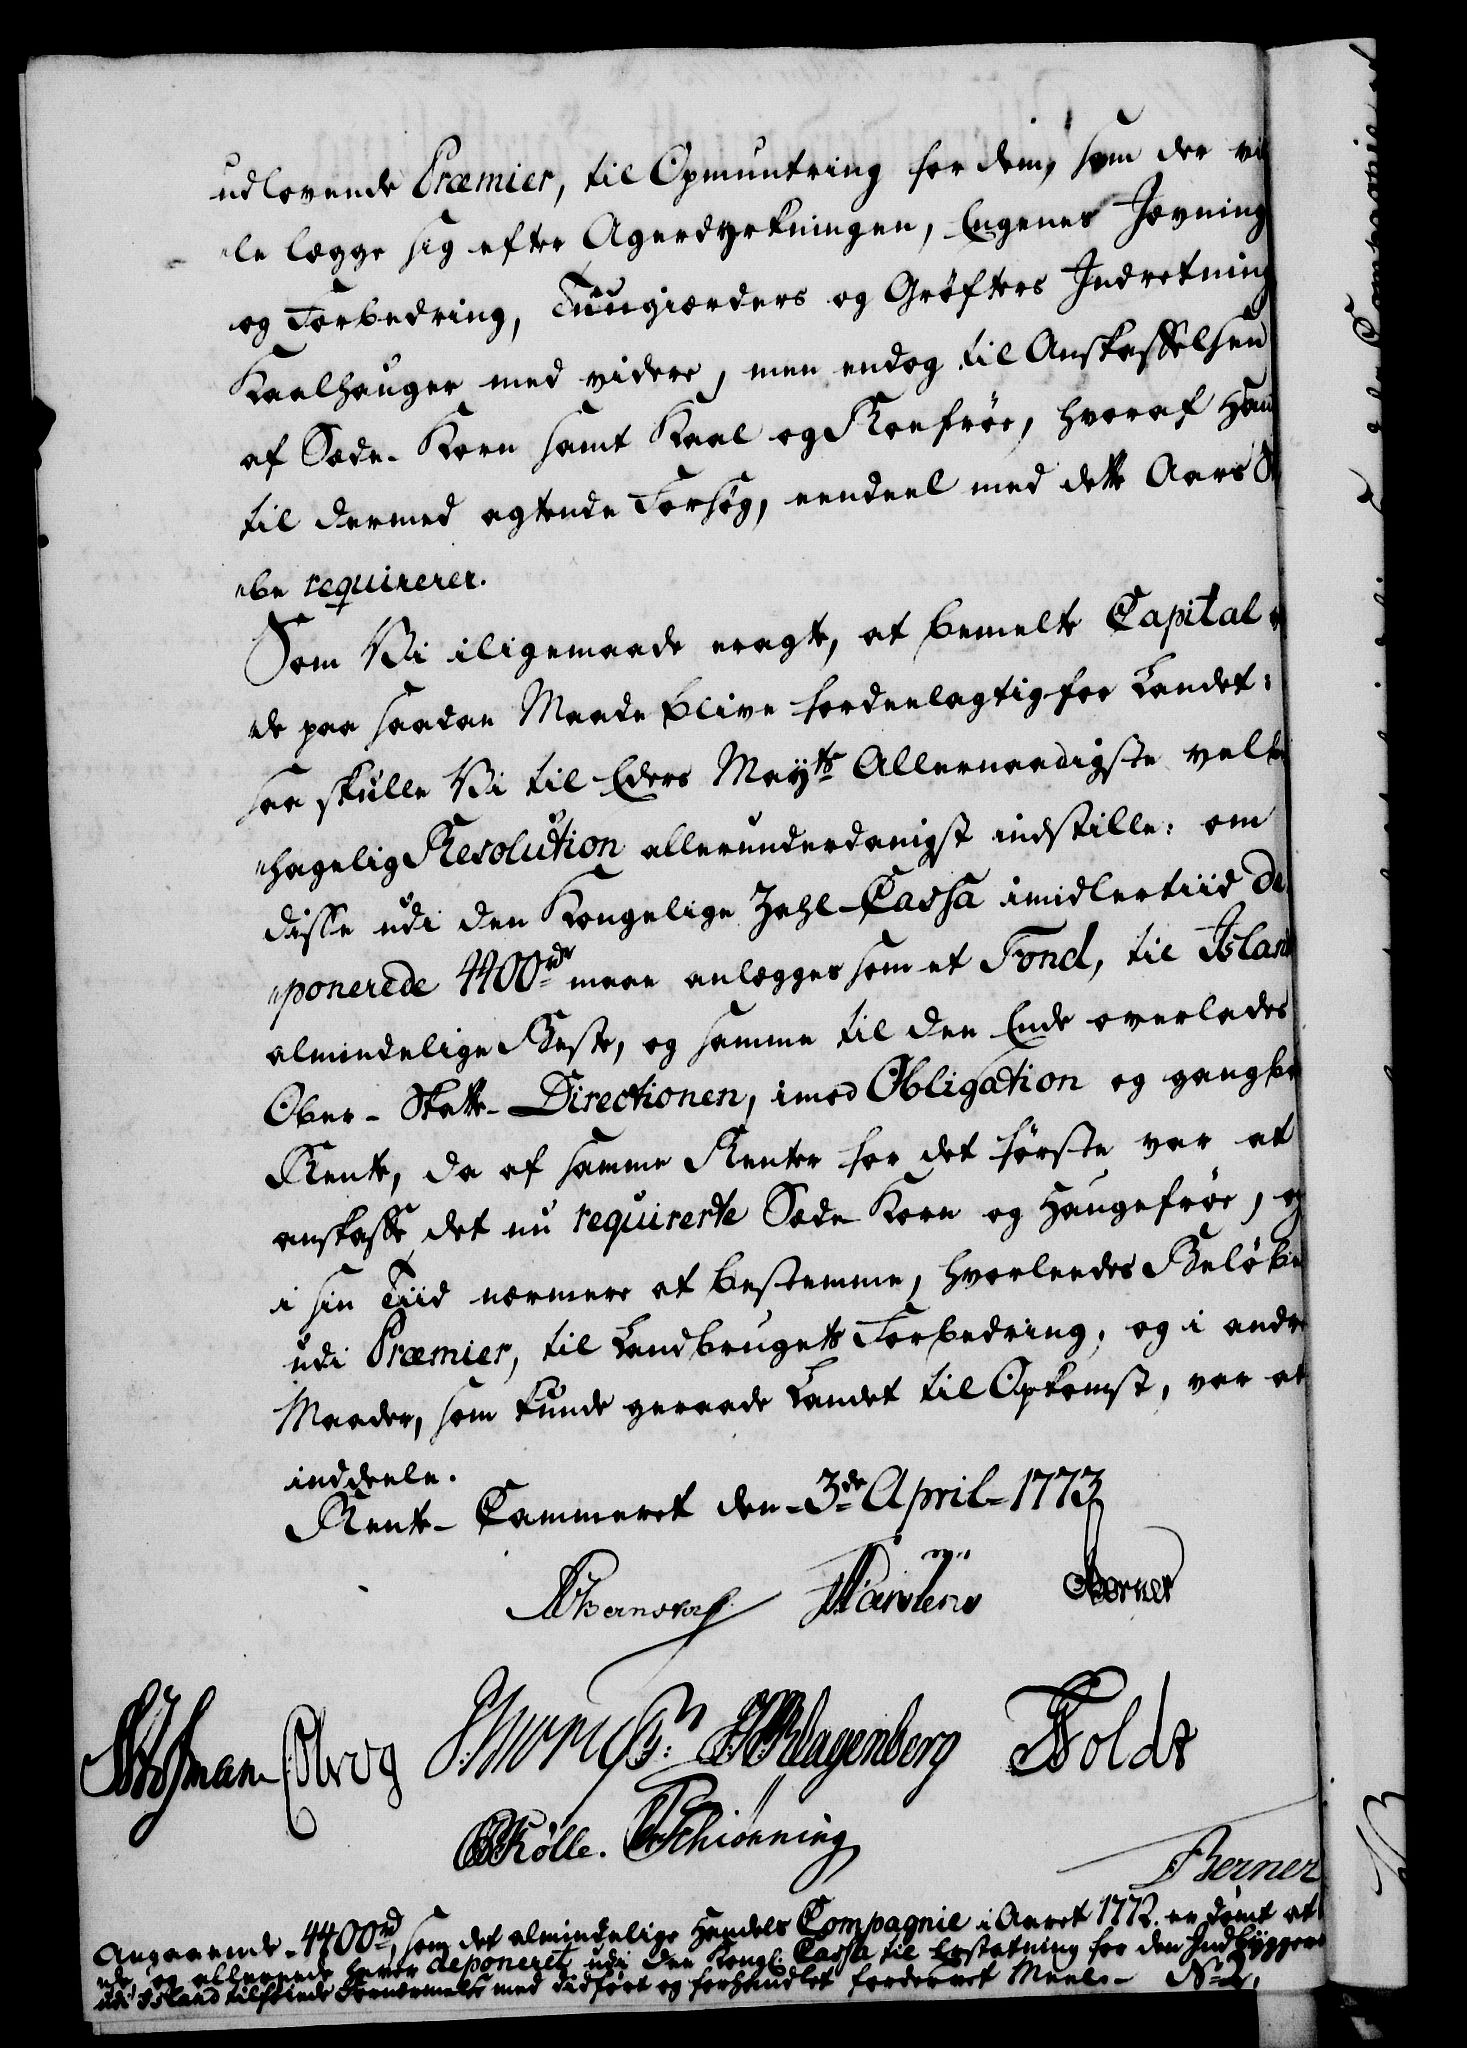 udlovende Præmier, til Opmuntring for dem, som der vi
le lægge sig efter Agerdyrkningen, Engenes Jævning
og Forbedring, Tuugiærders og Grøfters Indretning
Kaalhauger med videre, men endog til Anskaffelsen
af Sæde-Korn samt Kaal og Roefrøe, hvoraf Han
til dermed agtende Forsøg, eendeel med dette Aars
be requirerer.
Som Vi iligemaade eragte, at bemelte Capital
de paa saadan Maade blive fordeelagtig for Landet:
saa skulle Vi til Eders Mayts Allernaadigste velbe
hagelig Resolution allerunderdanigst indstille: om
disse udi den Kongelige Zahl-Cassa imidlertiid de
ponerede 4400rdr maae anlægges som et Fond, til Island
almindelige Beste, og samme til den Ende overlades
Over-Skatte-Directionen, imod Obligation og gangbar
Rente, da af samme Renter for det første var at
anskaffe det nu requirerte Sæde Korn og Haugefrøe, og
i sin Tiid nærmere at bestemme, hvorleedes Beløbe
udi Præmier, til Landbrugets Forbedring, og i andre
Maader, som kunde geraade Landet til Opkomst, var at
inddeele.
Rente-Cammeret den 3de April 1773
ABernstorff Carstens Berner
Hofman Colrog Klagenberg Foldt
Kølle. Schiønning
Berner
Angaaende 4400rd, som det almindelige Handels Compagnie i Aaret 1772. er dømt at
ude, og allereede haver deponeret udi den Kongl: Cassa til Erstatning for den Indbyggerne
udi Island tilføiede Fornærmelse med didført og forhandlet fordervet Meel. No 2,